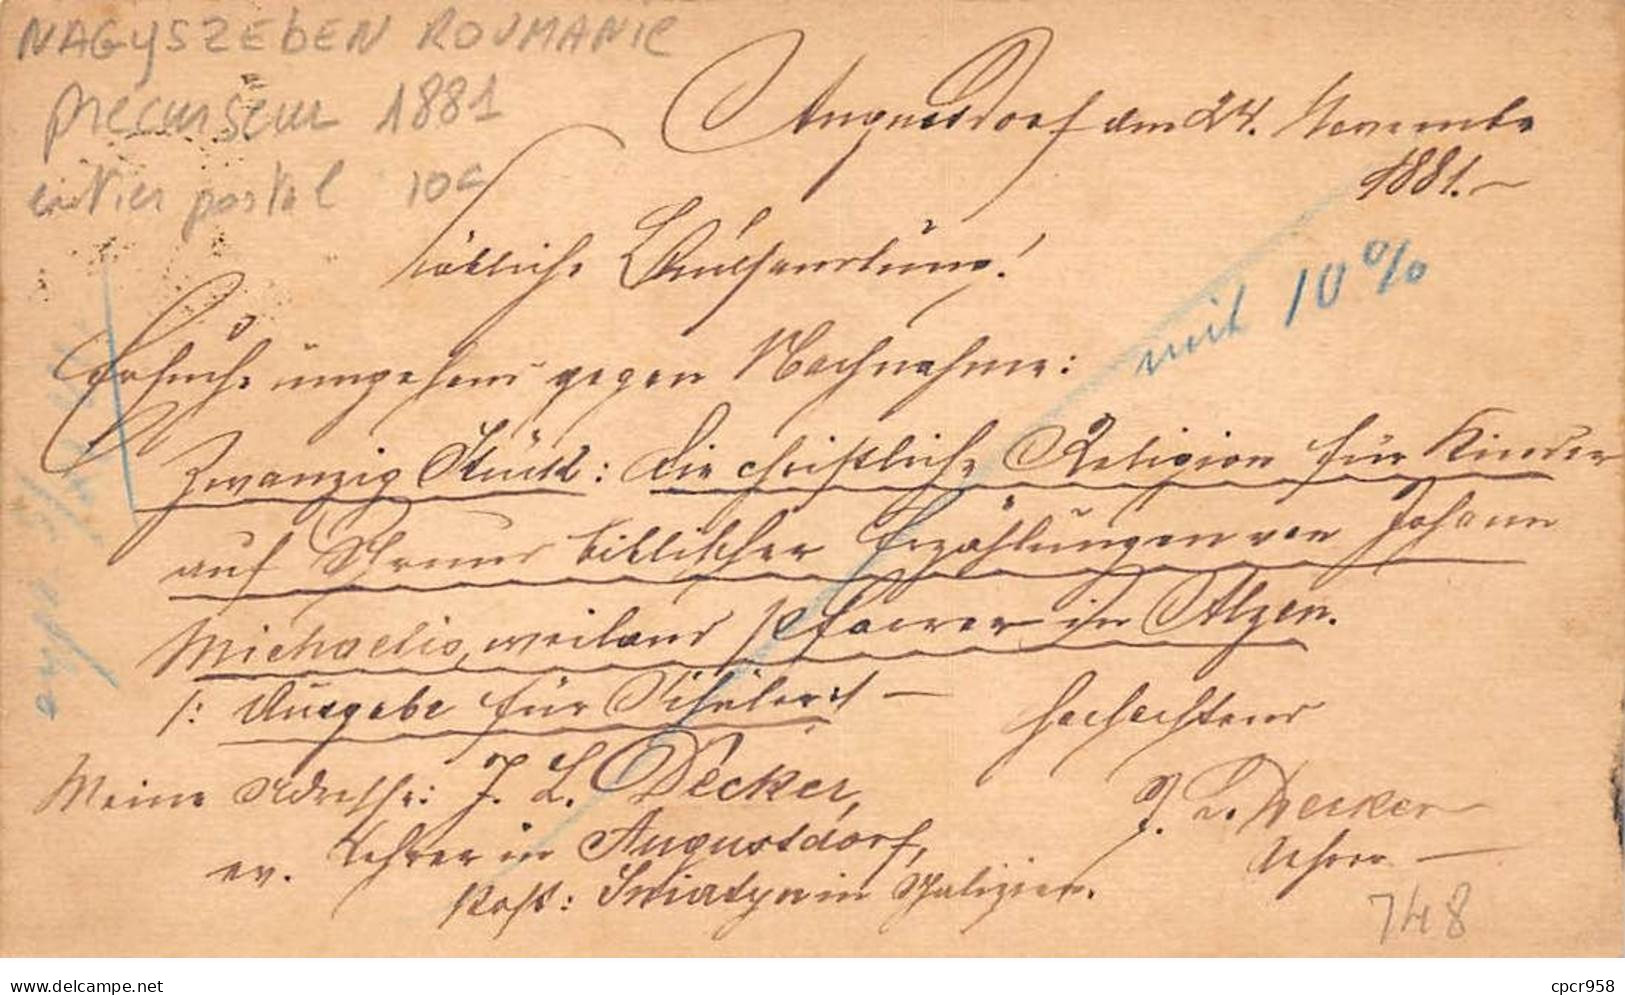 NAGYSZEBEN ROUMANIE
précurseur 1881
entier postal 10c
Augustdorf am 24. November
1881.
Löbliche Buchhandlung!
mit 10%
Ersuche umgehend gegen Nachnahme:
Zwanzig Stück: Die christliche Religion für Kinder
auf Grund biblischer Erzählungen von Johann
Michaelis, weiland Pfarrer in Alzen.
/: Ausgabe für Schüler :/ —
Hochachtend
Meine Adresse: J. L. Decker,
J. L. Decker
ev. Lehrer in Augustdorf,
Lehrer —
Post: Sniatyn in Galizien.
748
www.delcampe.net
cpcr958